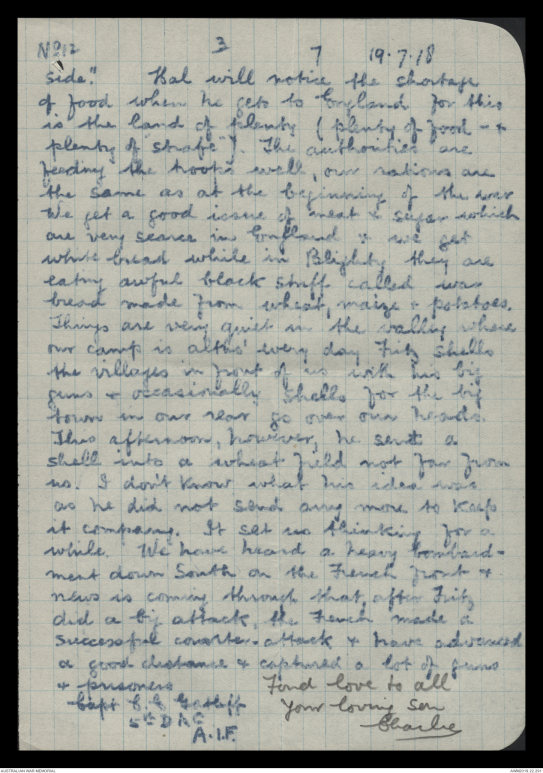 No 12 3 7 19.7.18
side." Hal will notice the shortage
of food when he gets to England for this
is the land of plenty (plenty of food - &
plenty of "strafe"). The authorities are
feeding the troops well, our rations are
the same as at the beginning of the war
We get a good issue of meat & sugar which
are very scarce in England & we get
white bread while in Blighty they are
eating awful black stuff called war
bread made from wheat, maize & potatoes.
Things are very quiet in the valley where
our camp is altho' every day Fritz shells
the villages in front of us with his big
guns & occasionally shells for the big
town in our rear go over our heads.
This afternoon, however, he sent a
shell into a wheat field not far from
us. I don't know what his idea was
as he did not send any more to keep
it company. It set us thinking for a
while. We have heard a heavy bombard-
ment down South on the French front &
news is coming through that, after Fritz
did a big attack, the French made a
successful counter-attack & have advanced
a good distance & captured a lot of guns
& prisoners
Fond love to all
Your loving son
Charlie
Capt C.E. Gatliff
5th DAC
A.I.F.
AUSTRALIAN WAR MEMORIAL